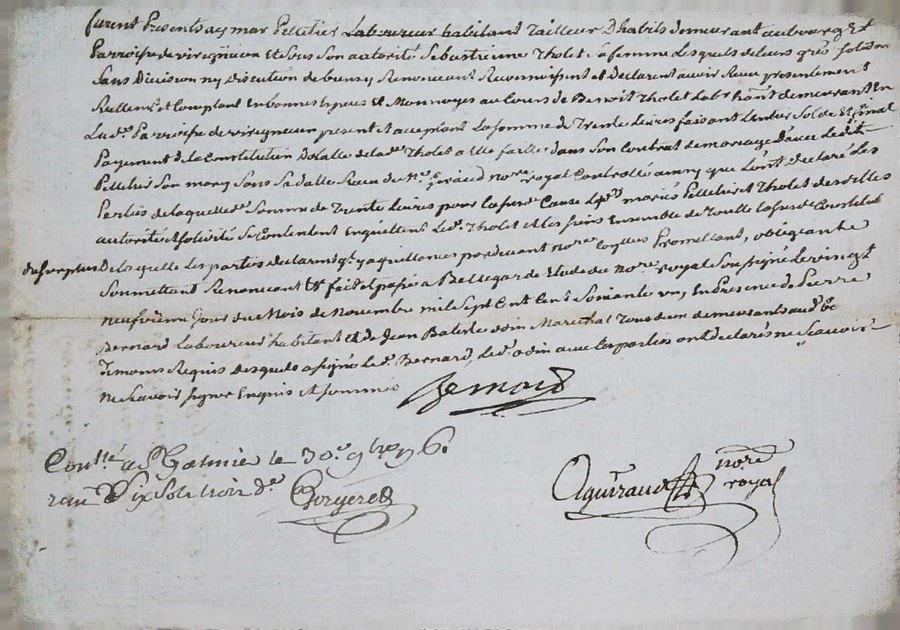 furent Presents aymar Pelletier Laboureur habitant Tailleur Dhabits demeurant au bourg Et
Parroisse de virignieux et Sous Son autorité Sebastienne Tholet Sa femme Lesquels de leurs grés Solid.
Sans Division ny discution de biens y Renoncant Reconnoissent et Declarent avoir Receu presentement
Reellem.t et Comptant En bonnes Espèces Et Monnoyes au Cours de Benoit Tholet Lab.r habt demeurant En
La d.e Parroisse de virignieux present et acceptant La Somme de Trente Livres faisant Lentier Solde Et final
Payement de la Constitution Dotalle de la d.e Tholet a Elle faitte dans Son Contrat de mariage D'avec Led.t
Pelletier Son mary Receu du n.e Giraud no.re royal Controllé ainsy que L'ont declaré Les
Parties de laquelle d.e Somme de Trente Livres pour la Susd.e Cause Les d. mariés Pelletier et Tholet
autorité et Solidité Se Contentent En quittent Le d. Tholet et Les Siens Ensemble de Toutte La Susd. Constitut.
du Surplus De Laquelle Les parties declarent q. y a quittance par devant no.re Promettant, obligeant &
Soumettant Renoncant &c fait et passé a Bellegarde Etude du no.re royal Soussigné Le vingt
neufvième jour du Mois de Novembre mil Sept Cent Soixante un, En Presence de Pierre
Bernard Laboureur habitant et de Jean Batiste odin Marechal Tous deux demeurants aud. be
Temoins Requis desquels a Signé Le d. Bernard, Le d. odin aux Les parties ont declarés ne Scavoir
ne Scavoir Signer Enquis et Sommés
Bernard
Con.llé a St Galmier le 30.e 9bre 1761
recu Six Sols trois d.
Aguiraud no.re
royal